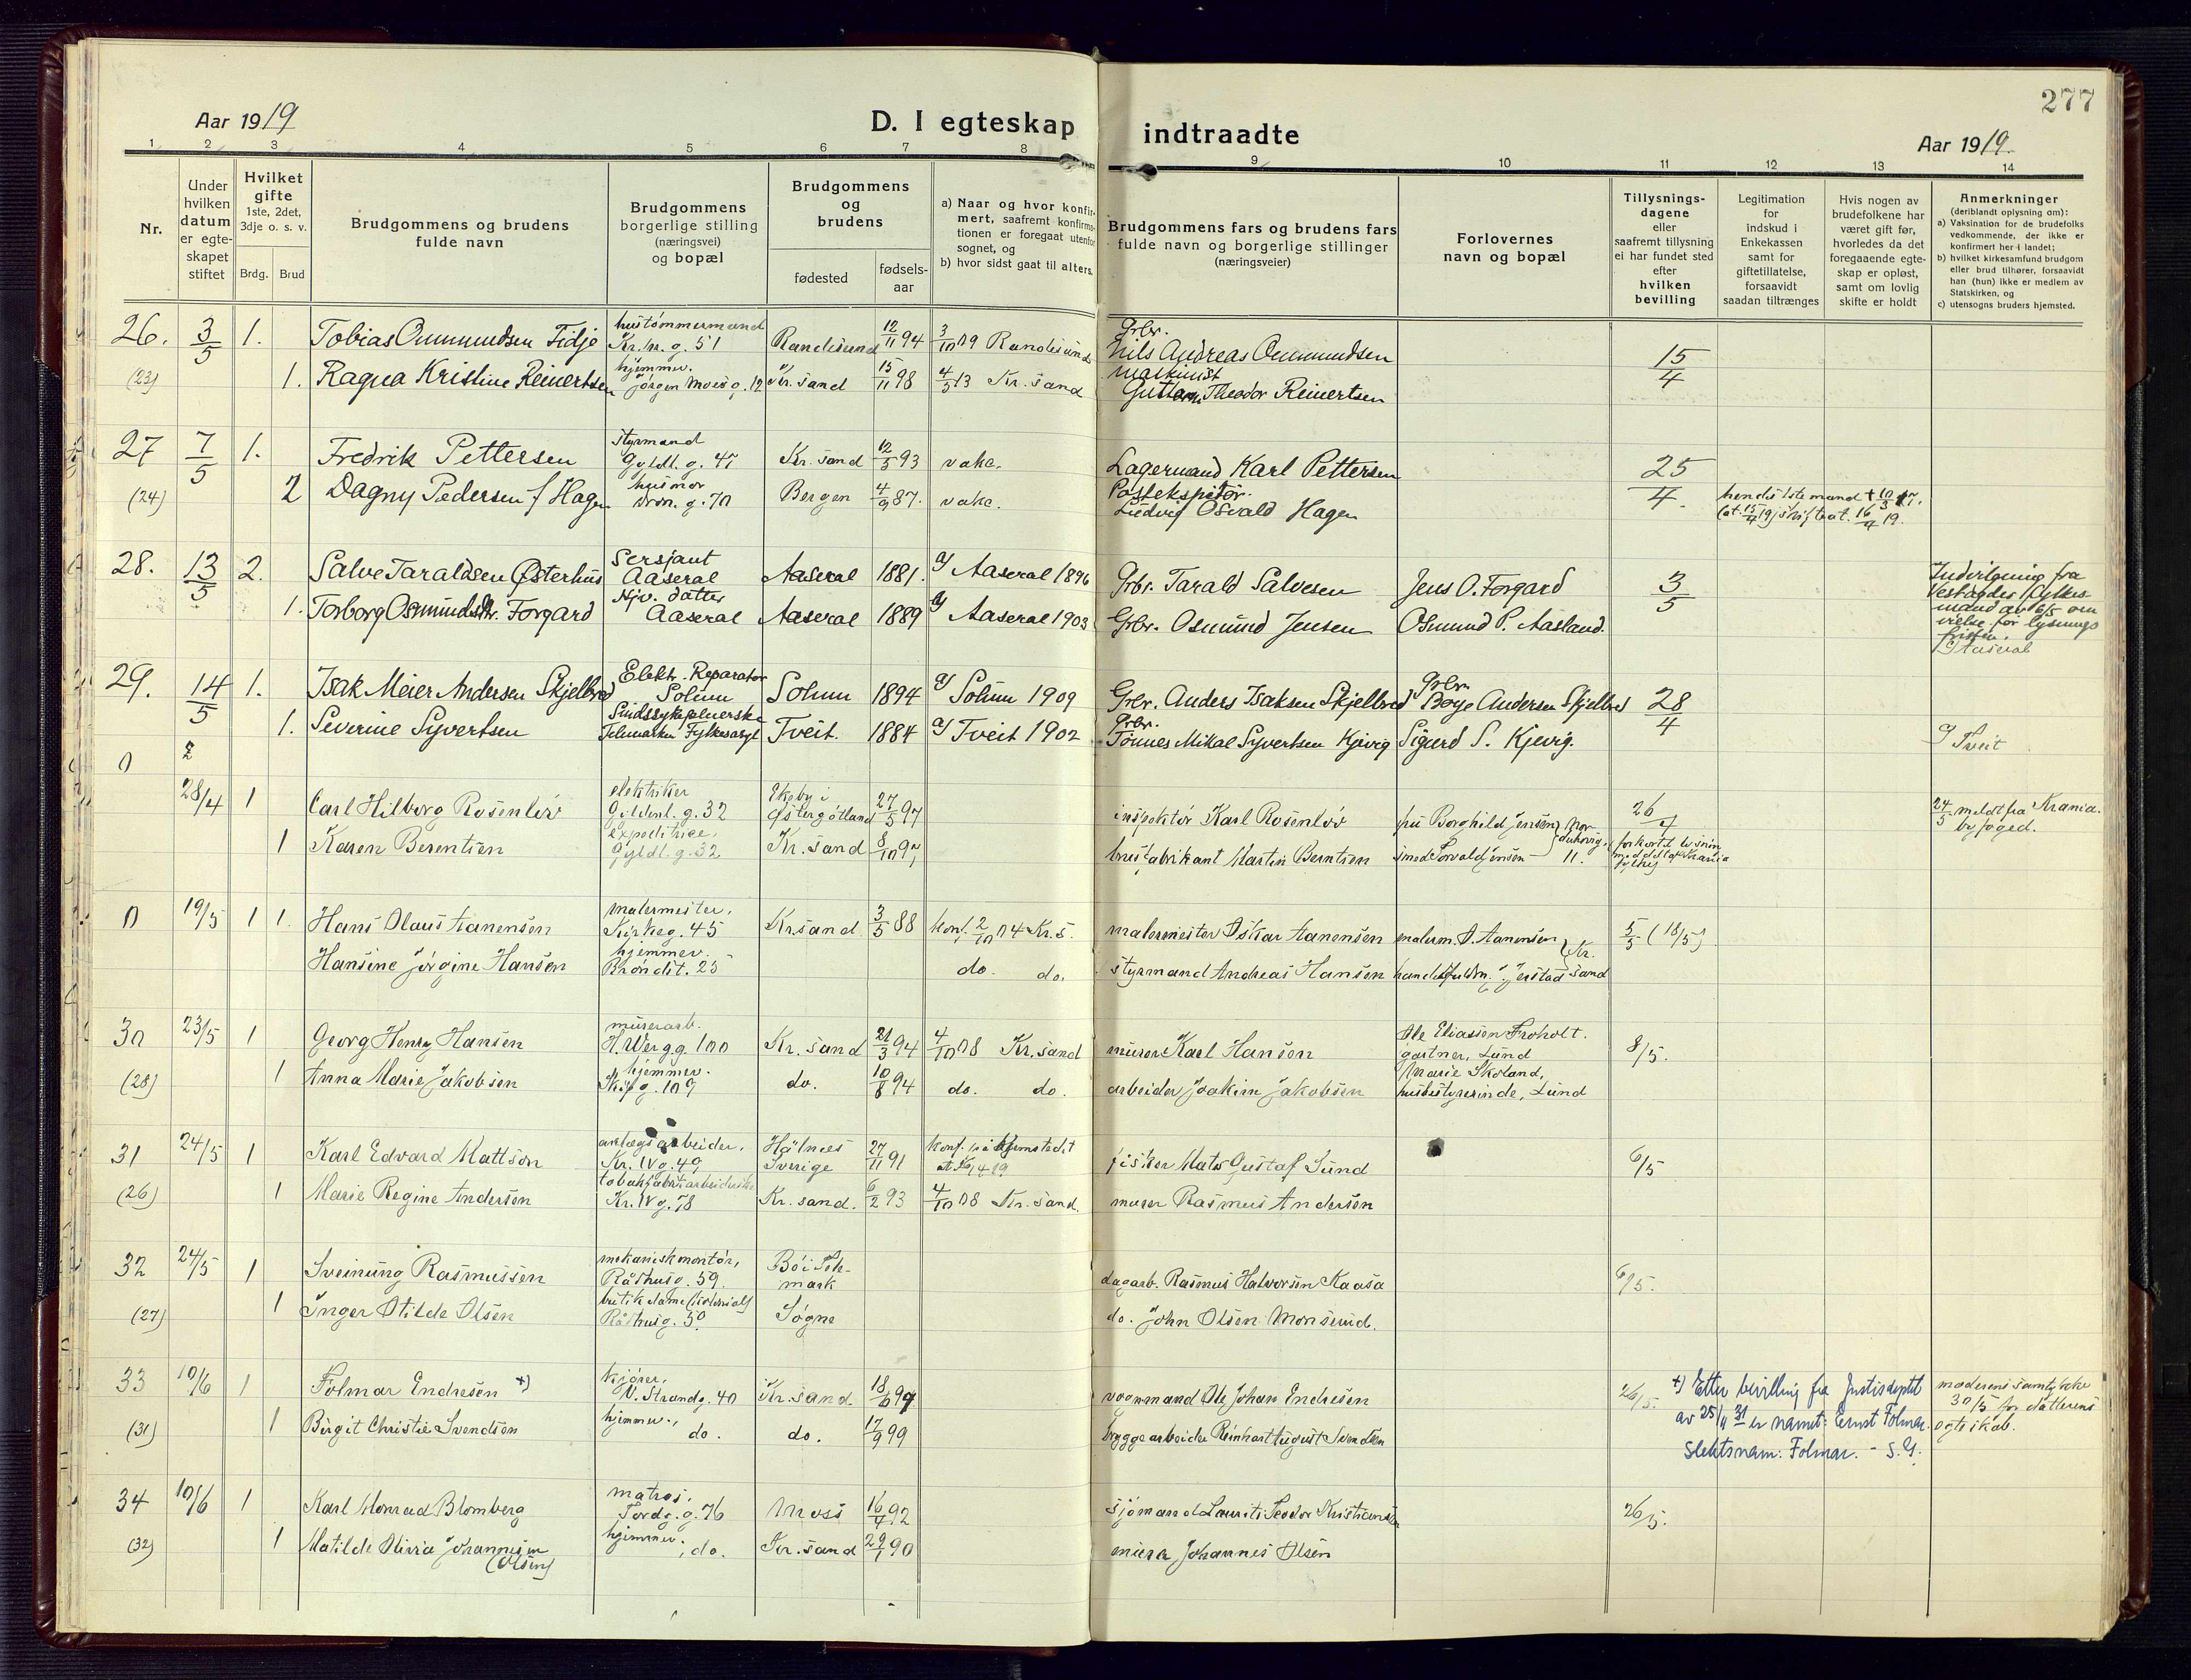 277
Aar 1919
D. I egteskap indtraadte
Aar 1919.
1 2 3 4 5 6 7 8 9 10 11 12 13 14
Nr.
Under hvilken datum er egte-skapet stiftet
Hvilket gifte
1ste, 2det, 3dje o. s. v.
Brdg. Brud
Brudgommens og brudens fulde navn
Brudgommens borgerlige stilling (næringsvei) og bopæl
Brudgommens og brudens
fødested
fødsels-aar
a) Naar og hvor konfir-mert, saafremt konfirma-tionen er foregaat utenfor sognet, og
b) hvor sidst gaat til alters.
Brudgommens fars og brudens fars fulde navn og borgerlige stillinger (næringsveier)
Forlovernes navn og bopæl
Tillysnings-dagene eller saafremt tillysning ei har fundet sted efter hvilken bevilling
Legitimation for indskud i Enkekassen samt for giftetillatelse, forsaavidt saadan tiltrænges
Hvis nogen av brudefolkene har været gift før, hvorledes da det foregaaende egte-skap er opløst, samt om lovlig skifte er holdt
Anmerkninger
(deriblandt oplysning om):
a) Vaksination for de brudefolks vedkommende, der ikke er konfirmert her i landet;
b) hvilket kirkesamfund brudgom eller brud tilhører, forsaavidt han (hun) ikke er medlem av Statskirken, og
c) utensogns bruders hjemsted.
26. 3/5 1. Tobias Ommundsen Fidje hustømmermand Kr. IV. g. 51 Randesund 12/11 94 3/10 09 Randesund Grbr. Nils Andreas Ommundsen 15/4
(23) 1. Ragna Kristine Reinertsen hjemmev. Jørgen Moes g. 12 Kr. sand 15/11 98 4/5 13 Kr. sand maskinist Theodor Reinertsen
27 7/5 1. Fredrik Pettersen styrmand Gyldl. g. 47 Kr. sand 12/5 93 vake. Lagermand Karl Pettersen 25/4
(24) 2 Dagny Pedersen f Hagen husmor Dron. g. 70 Bergen 4/9 87. vake. Postekspeditør. Ludvig Osvald Hagen hendes 1ste mand † 10/3 17. (at. 15/4 19) skifteat. 16/4 19.
28. 13/5 2. Salve Taraldsen Østerhus Sersjant Aaseral Aaseral 1881. a) Aaseral 1896 Grbr. Tarald Salvesen Jens O. Forgard 3/5
1. Torborg Osmundsdtr. Forgard datter Aaseral Aaseral 1889 a) Aaseral 1903 Grbr. Osmund Jensen Osmund P. Aasland.
av 6/5 om vielse før lysnings fristen. c) Aaseral
29. 14/5 1. Isak Meier Andersen Skjelbred Elektr. Reparatør Solum Solum 1894 a) Solum 1909 Grbr. Anders Isaksen Skjelbred Grbr. Børge Andersen Skjelbred 28/4
1. Severine Syvertsen Sindssykepleierske Telemarken Fylkesasyl Tveit. 1884 a) Tveit 1902 Grbr. Tønnes Mikal Syvertsen Kjevig Sigurd S. Kjevig. c) Tveit
0 2
28/4 1 Carl Hilborg Rosenløv elektriker Gyldenl. g. 32 Ekeby i Østergötland 27/5 97 inspektør Karl Rosenløv fru Borghild Jensen 26/4 24/5 meldt fra Krania. byfoged.
1 Karen Berentsen expeditrice. Gyldl. g. 32 Kr. sand 8/10 97 brusfabrikant Martin Berntsen smed Torvald Jensen 11. forkortet lysning
0 19/5 1 1. Hans Olaus Aanensen malermester. Kirkeg. 45 Kr.sand 3/5 88 konf. 2/10 04 Kr. S. malermester Oskar Aanensen malerm. O. Aanensen 5/5 (18/5)
Hansine Jørgine Hansen hjemmev. Brøndst. 25 do. do. styrmand Andreas Hansen Jerstad Kr. sand
30 23/5 1 Georg Henry Hansen murerarb. H. Werg. g. 100 Kr. sand 21/3 94 4/10 08 Kr. sand murer Karl Hansen Ole Eliassen Froholt. gartner, Lund 8/5.
(28) 1 Anna Marie Jakobsen hjemmev. Skipg. 109 do. 10/8 94 do. do. arbeider Joakim Jakobsen Marie Skoland, husbestyrerinde, Lund
31 24/5 1 Karl Edvard Mattson anlægsarbeider, Kr. IV g. 49 Hälnäs Sverige 27/11 91 konf. på hjemstedet fisker Mats Gustaf Sund 6/5
(26) 1 Marie Regine Andersen tobakfabrikarbeiderske Kr. IV g. 78 Kr. sand. 6/2 93 4/10 08 Kr. sand. murer Rasmus Andersen
32 24/5 1 Sveinung Rasmussen mekanisk montør, Rådhusg. 59. Bø i Tele-mark dagarb. Rasmus Halvorsen Kaasa 6/5.
(27) 1 Inger Otilde Olsen butikdame Rådhusg. 50 Søgne do. John Olsen Monseud.
33 10/6 1 Folmar Endresen +) kjører, V. Strandg. 40 Kr. sand. 18/6 97 vognmand Ole Johan Endresen 26/5. +) Etter bevilling fra Justisdeptet av 25/4 31 er navnet: Ernst Folmar. Slektsnavn: Folmar. – S. G. moderens samtykke 30/5 for datterens egteskab.
(31) 1 Birgit Christie Svendsen hjemmev., do. do. 17/9 99 bryggearbeider Reinhart August Svendsen
34 10/6 1 Karl Monrad Blomberg matros, Tordg. g. 76 Moss 16/4 92 sjømand Laurits Teodor Kristiansen 26/5.
(32) 1 Matilde Olivia Johannesen (Olsen) hjemmev. do. Kr. sand 29/1 90 murer Johannes Olsen